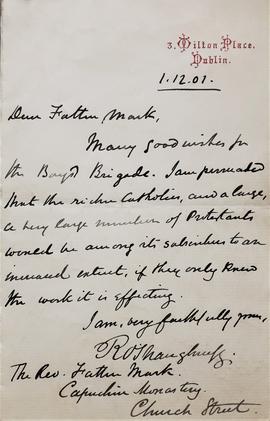 3, Wilton Place,
Dublin.
1.12.01.
Dear Father Mark,
Many good wishes for
the Boys' Brigade. I am persuaded
that the richer Catholics, and a large,
a very large number of Protestants
would be among its subscribers to an
increased extent, if they only knew
the work it is effecting.
I am, very faithfully yours,
R O'Shaughnessy.
The Rev. Father Mark.
Capuchin Monastery.
Church Street.